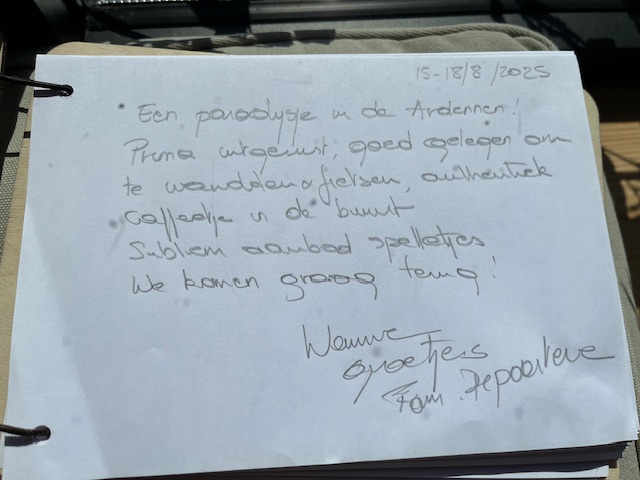 15-18/8/2025
Een paradijsje in de Ardennen!
Prima uitgerust, goed gelegen om
te wandelen & fietsen, authentiek
caffeetje in de buurt
Subliem aanbod spelletjes
We komen graag terug!
Warme
groetjes
Fam. Depoorteve